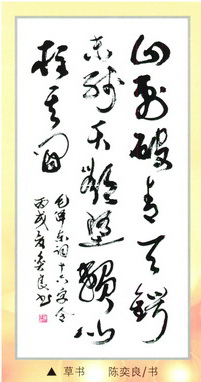 山刺破青天锷
未残天欲堕赖以
拄其间
毛泽东词十六字令
丙戌年奕良书
▲ 草书 陈奕良/书